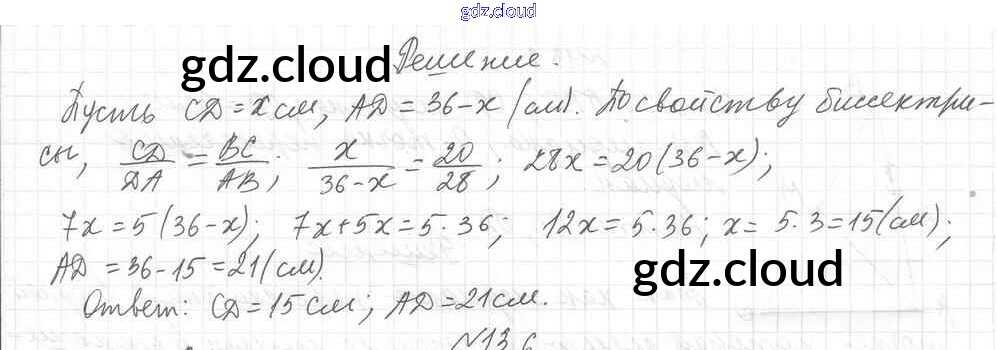 gdz.cloud
Решение.
gdz.cloud
Пусть CD = x см, AD = 36-x (см). По свойству биссектри-
сы, CD/DA = BC/AB; x/(36-x) = 20/28; 28x = 20(36-x);
7x = 5(36-x); 7x+5x = 5·36; 12x = 5·36; x = 5·3 = 15(см);
AD = 36-15 = 21(см).
gdz.cloud
Ответ: CD = 15 см; AD = 21 см.
№13.6